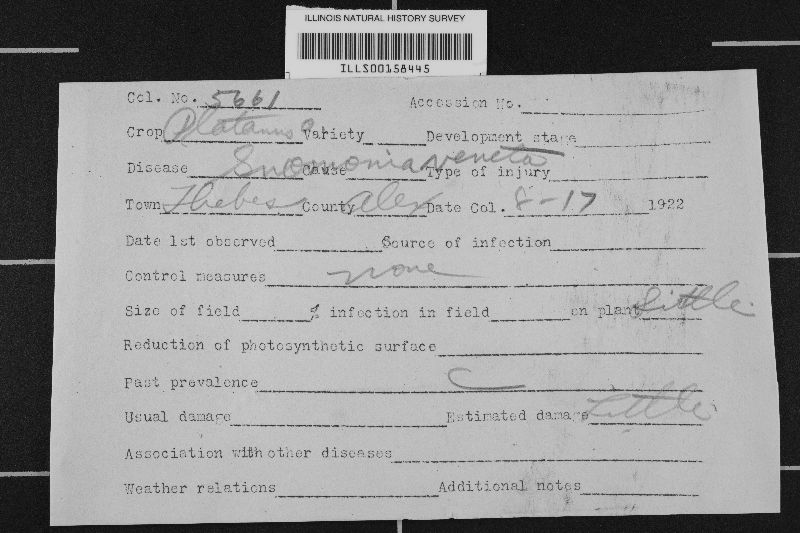 ILLINOIS NATURAL HISTORY SURVEY
ILLS00158445
Col. No. 5661 Accession No.
Crop Platanus o. Variety Development stage
Disease Gnomonia veneta Cause Type of injury
Town Thebes County Alex Date Col. 8-17 1922
Date 1st observed Source of infection
Control measures none
Size of field % infection in field on plant Little
Reduction of photosynthetic surface
Past prevalence C
Usual damage Estimated damage Little
Association with other diseases
Weather relations Additional notes